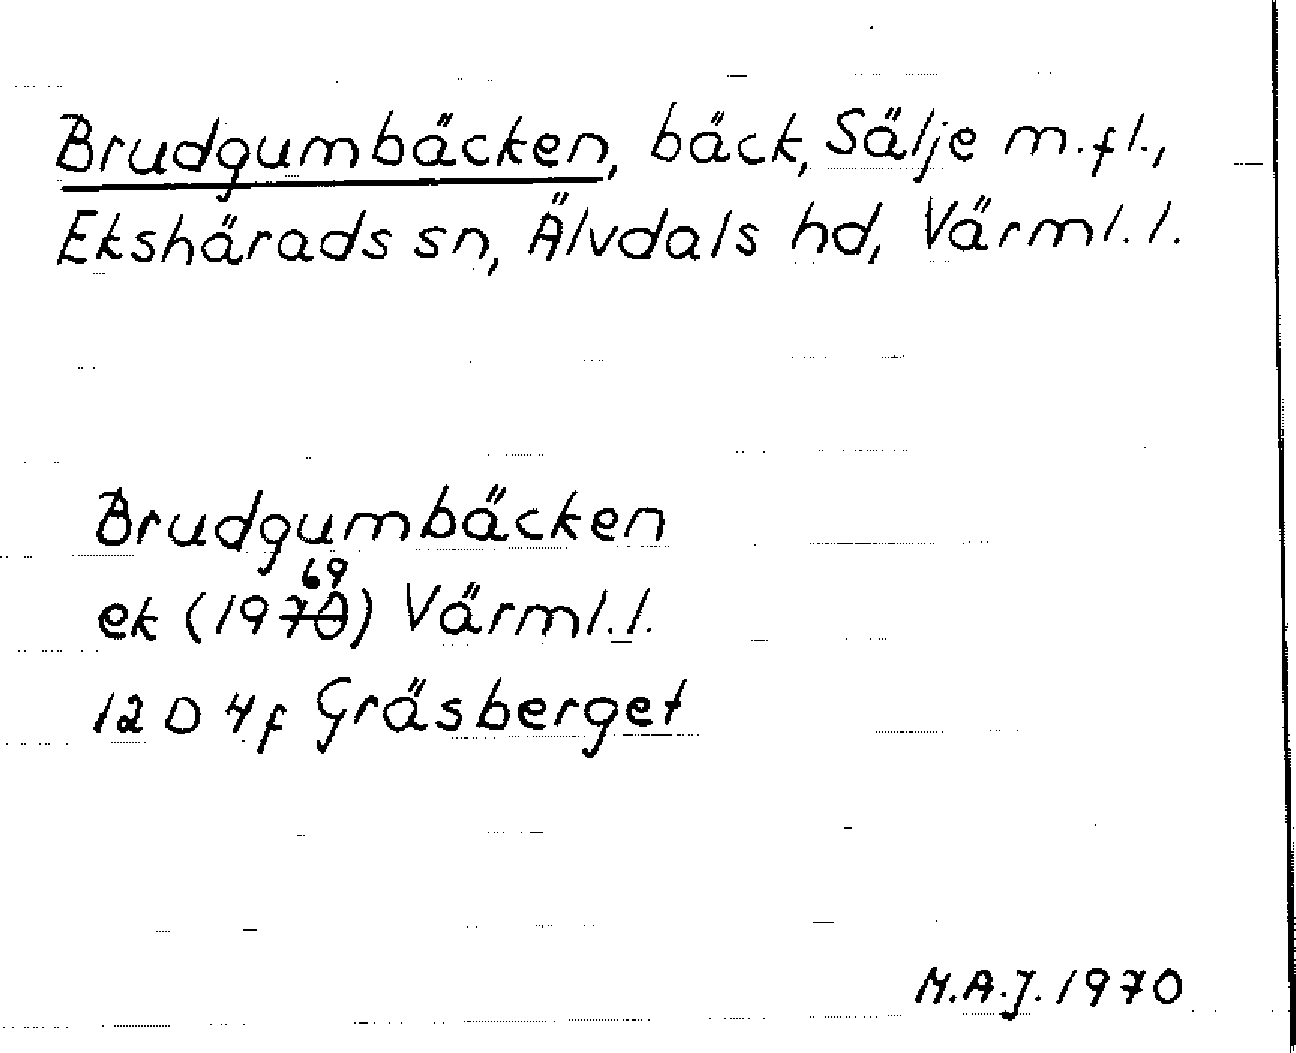 Brudgumbäcken, bäck, Sälje m.fl.,
Ekshärads sn, Älvdals hd, Värml.l.
Brudgumbäcken
69
ek (1970) Värml.l.
12 D 4f Gräsberget
M.A.J. 1970